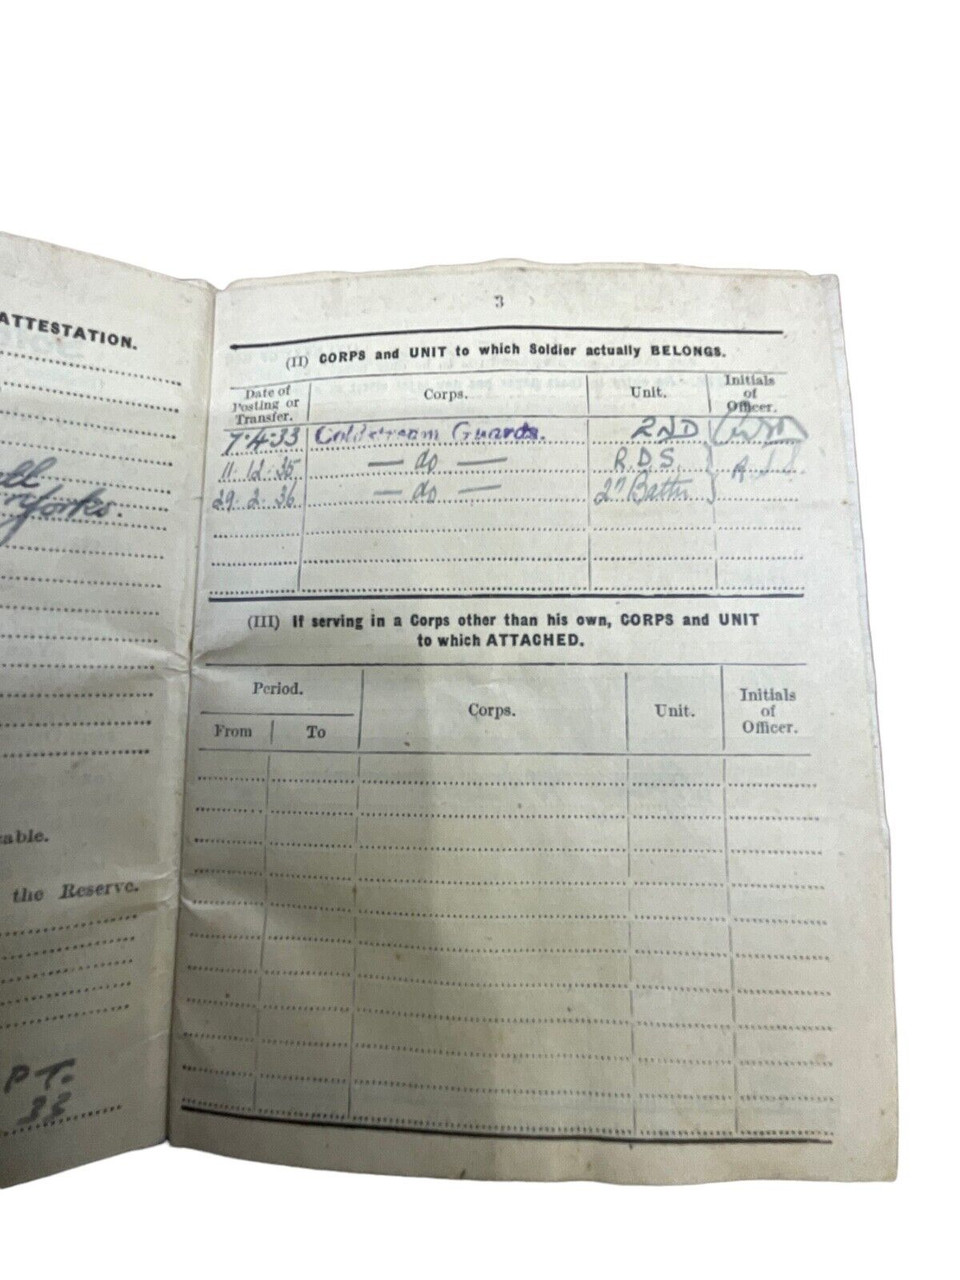 ATTESTATION.
Yorks.
cable.
the Reserve.
PT.
33
3
(II) CORPS and UNIT to which Soldier actually BELONGS.
Date of Posting or Transfer. Corps. Unit. Initials of Officer.
7.4.33 Coldstream Guards. 2ND
11.12.35 — do — R.D.S.
29.2.36 — do — 2nd Battn
(III) If serving in a Corps other than his own, CORPS and UNIT
to which ATTACHED.
Period. Corps. Unit. Initials of Officer.
From To